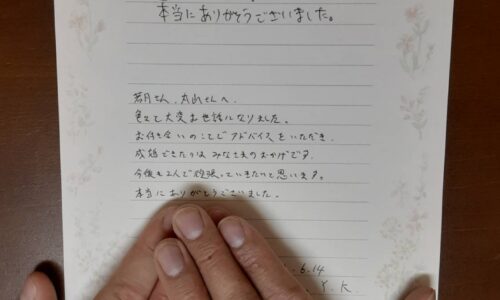 本当にありがとうございました。
さん、本山さんへ。
色々と大変お世話になりました。
お付き合いのことでアドバイスをいただき、
成婚できたのはみなさまのおかげです。
今後も2人で頑張っていきたいと思います。
本当にありがとうございました。
.6.14
Y.K